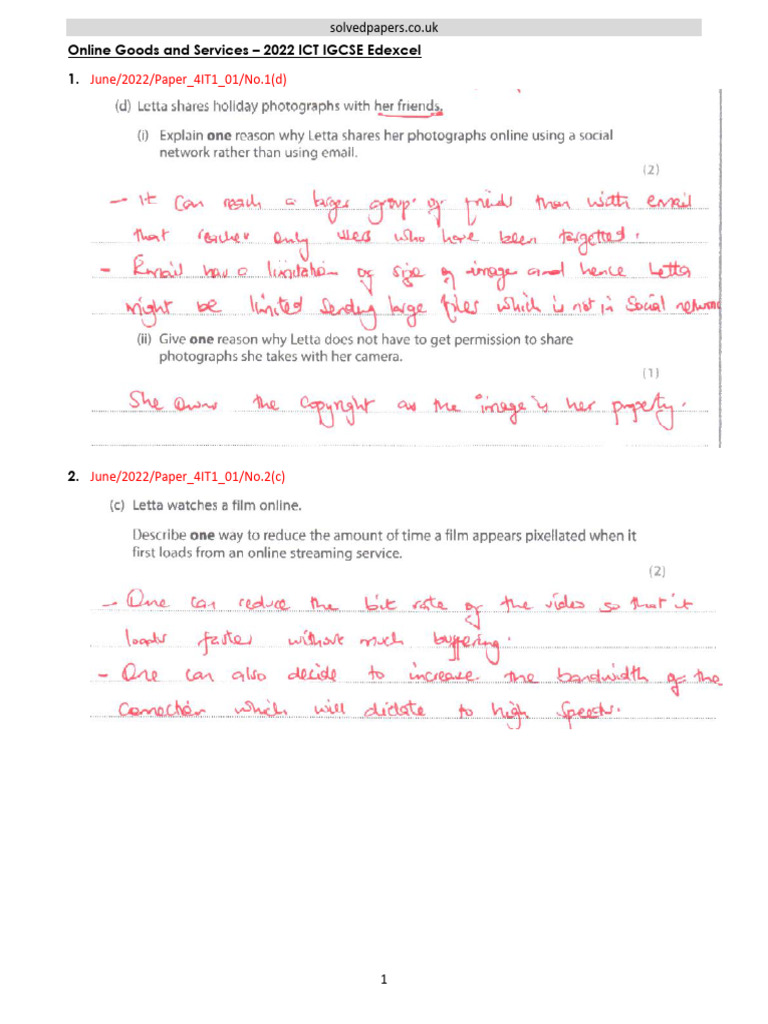 solvedpapers.co.uk
Online Goods and Services – 2022 ICT IGCSE Edexcel
1. June/2022/Paper_4IT1_01/No.1(d)
(d) Letta shares holiday photographs with her friends.
(i) Explain one reason why Letta shares her photographs online using a social
network rather than using email.
(2)
- It can reach a larger group of friends than with email
that reaches only users who have been targetted.
- Email has a limitation of size of image and hence Letta
might be limited sending large files which is not in social network
(ii) Give one reason why Letta does not have to get permission to share
photographs she takes with her camera.
(1)
She owns the copyright as the image is her property.
2. June/2022/Paper_4IT1_01/No.2(c)
(c) Letta watches a film online.
Describe one way to reduce the amount of time a film appears pixellated when it
first loads from an online streaming service.
(2)
- One can reduce the bit rate of the video so that it
loads faster without much buffering.
- One can also decide to increase the bandwidth of the
connection which will dictate to high speeds.
1